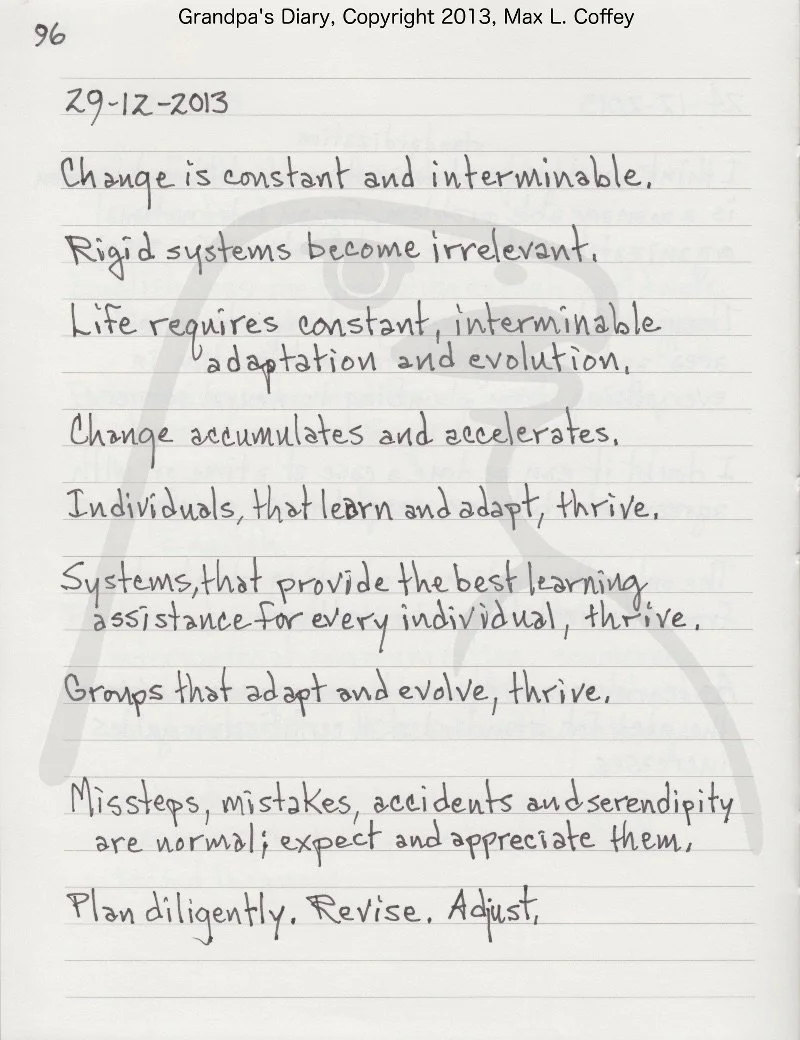 Grandpa's Diary, Copyright 2013, Max L. Coffey
96
29-12-2013
Change is constant and interminable.
Rigid systems become irrelevant.
Life requires constant, interminable
adaptation and evolution.
Change accumulates and accelerates.
Individuals, that learn and adapt, thrive.
Systems, that provide the best learning
assistance for every individual, thrive.
Groups that adapt and evolve, thrive.
Missteps, mistakes, accidents and serendipity
are normal; expect and appreciate them.
Plan diligently. Revise. Adjust.